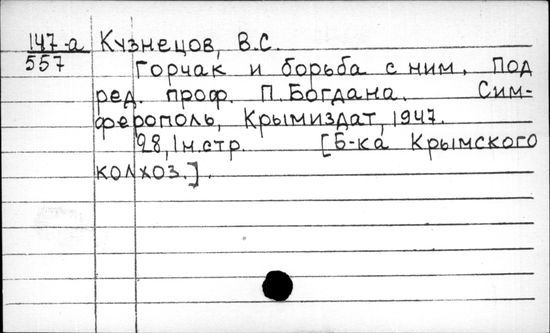 147-а Кузнецов, В.С.
557
Горчак и борьба с ним. Под
ред. проф. П.Богдана. Сим-
ферополь, Крымиздат, 1947.
28, 1 н.стр. [Б-ка Крымского
колхоз.].